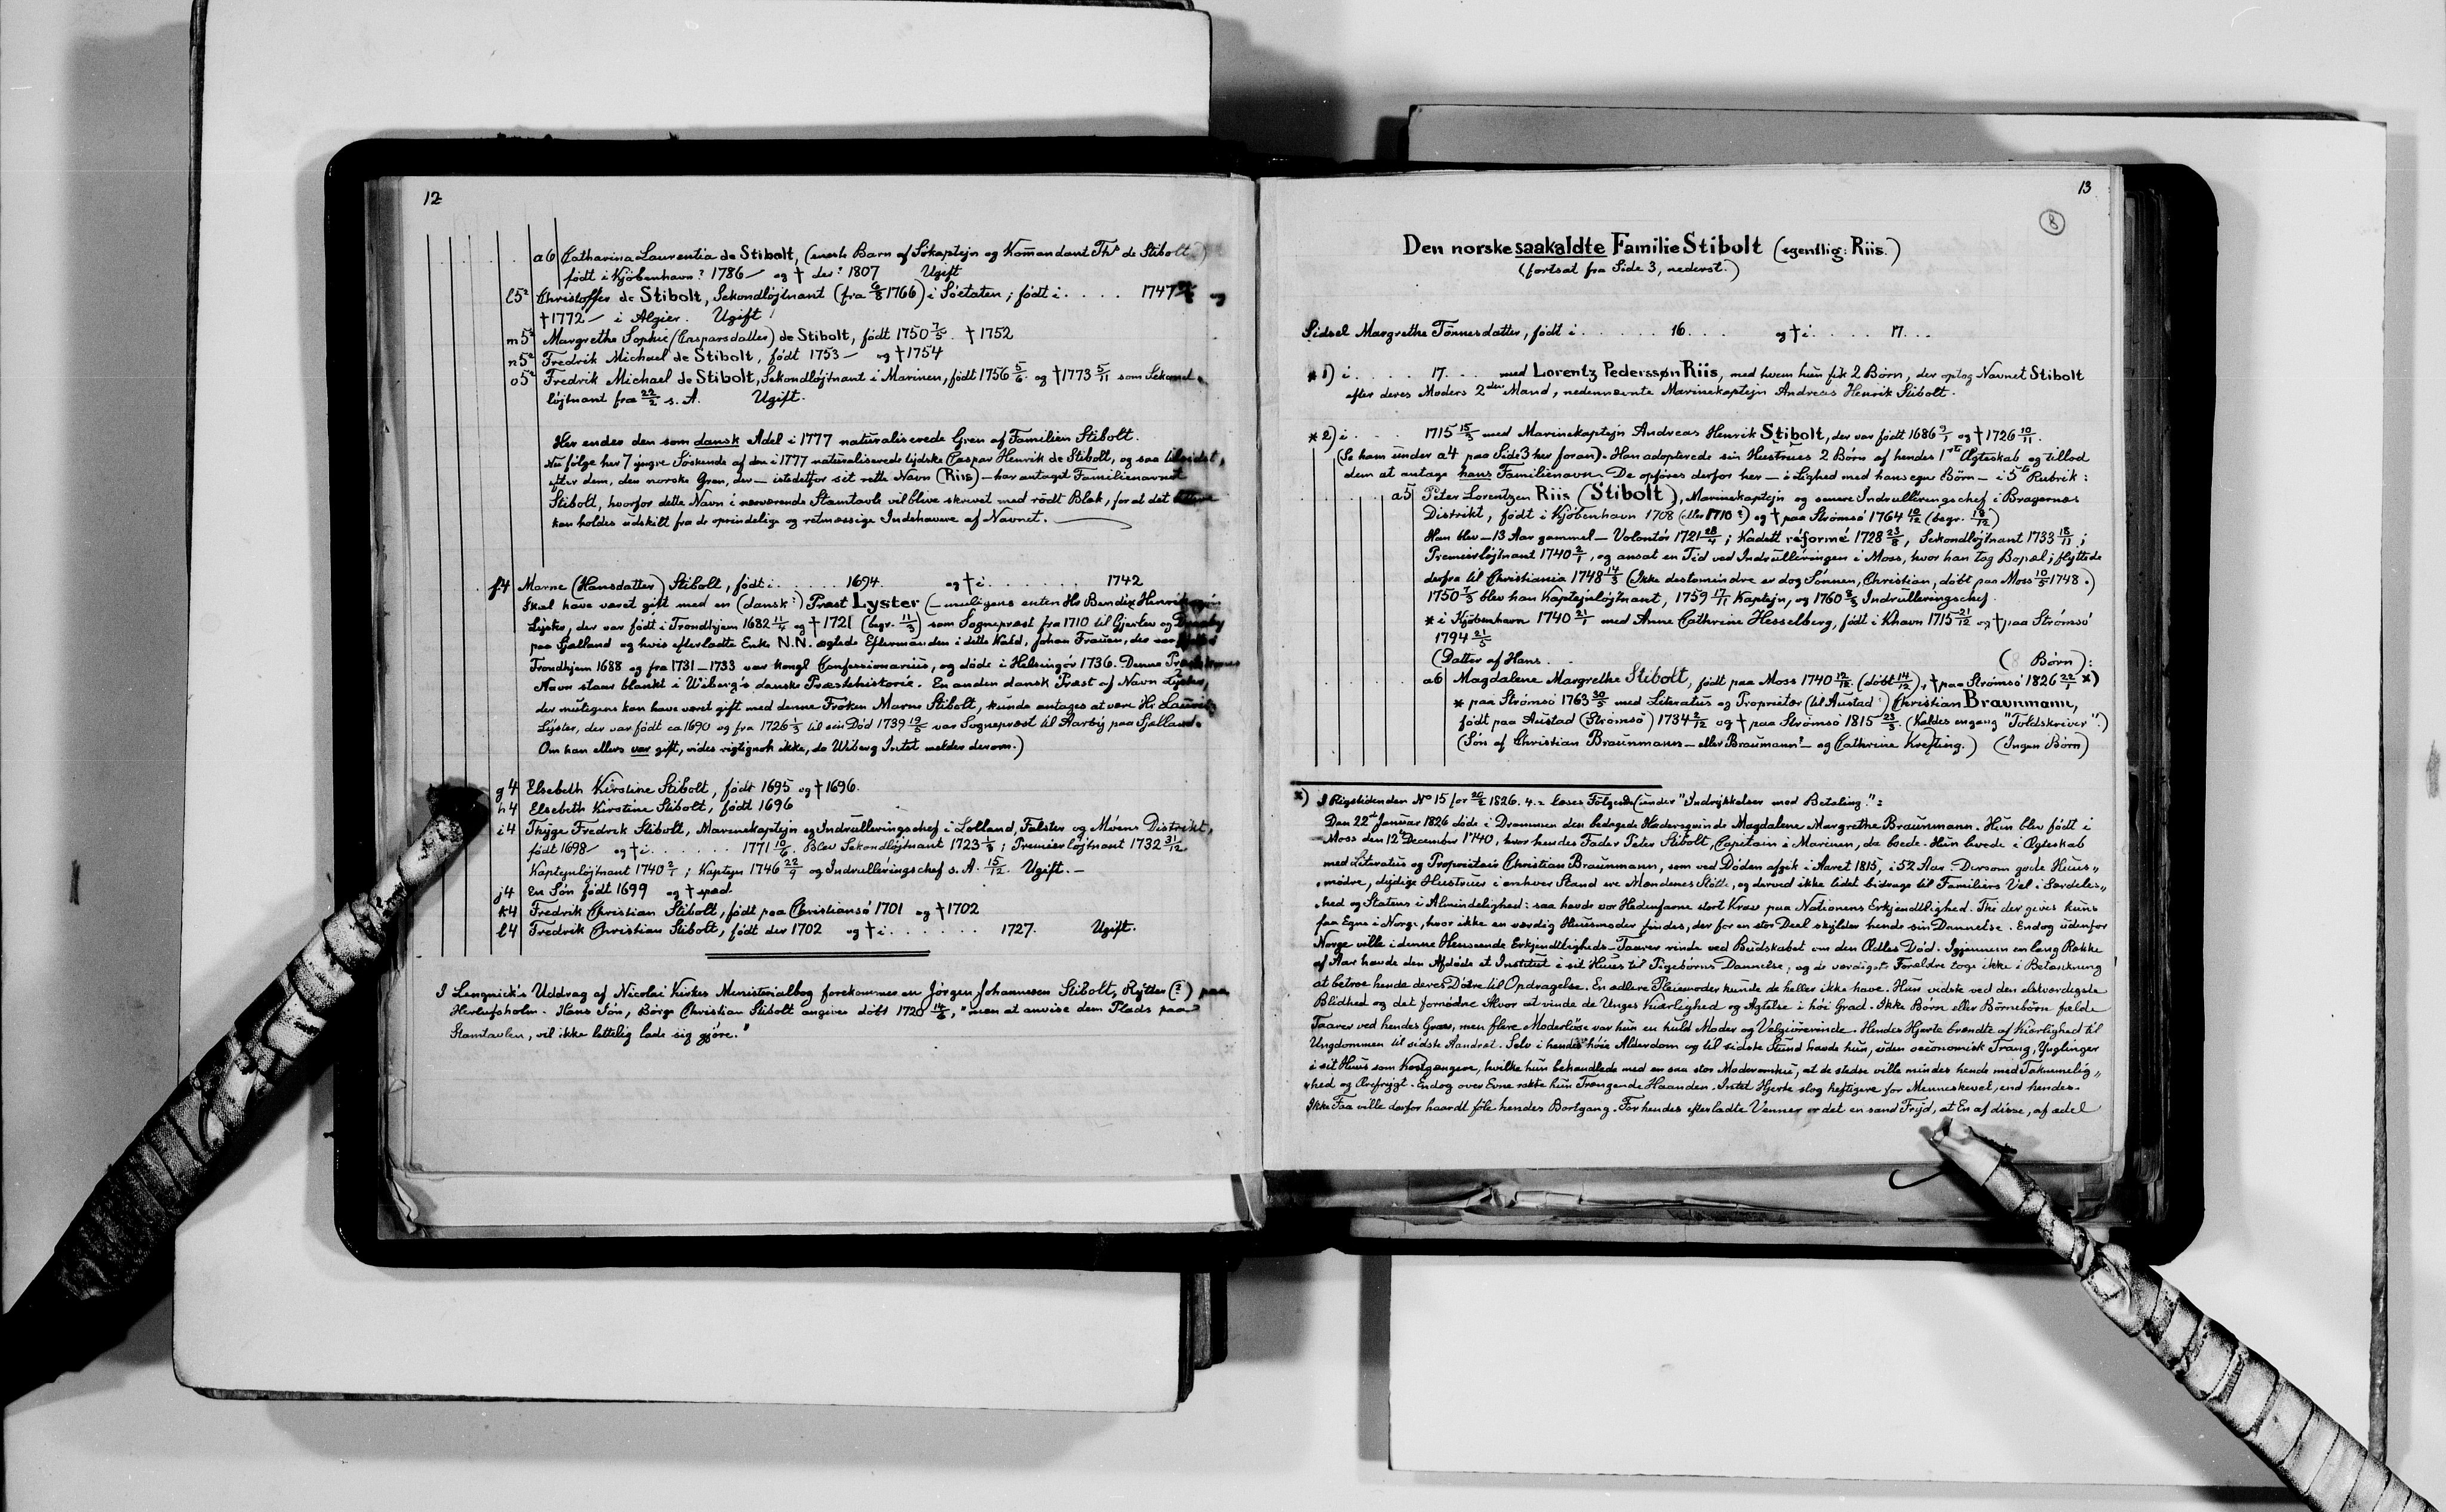 12
a6 Catharina Laurentia de Stibolt, (eneste Barn af Sökaptejn og Komandant Ths de Stibolt.)
født i Kjöbenhavn? 1786 — og † der? 1807 Ugift
l5² Christoffer de Stibolt, Sekondløjtnant (fra 6/8 1766) i Söetaten; født i . . . . . 1747 og
† 1772 — i Algier. Ugift!
m5² Margrethe Sophie (Caspersdatter) de Stibolt, født 1750 7/5. † 1752
n5² Fredrik Michael de Stibolt, født 1753 — og † 1754
o5² Fredrik Michael de Stibolt, Sekondløjtnant i Marinen, født 1756 5/6. og † 1773 5/11 som Sekond-
løjtnant fra 22/2 s. A. Ugift.
Her ender den som dansk Adel i 1777 naturaliserede Gren af Familien Stibolt.
Nu følge her 7 yngre Söskende af den i 1777 naturaliserede tydske Caspar Henrik de Stibolt, og saa tilsidst,
efter dem, den norske Gren, der — istedetfor sit rette Navn (Riis) — har antaget Familienavnet
Stibolt, hvorfor dette Navn i nærværende Stamtavle vil blive skrevet med rödt Blæk, for at det lettere
kan holdes udskilt fra de oprindelige og retmæssige Indehavere af Navnet.
f4 Marne (Hansdatter) Stibolt, født i . . . . . . 1694. og † i . . . . . . . . 1742
Skal have været gift med en (dansk?) Præst Lyster (— muligens enten Hr Bendix Henrik
Lyster, der var født i Trondhjem 1682 11/4 og † 1721 (begr. 11/3) som Sognepræst fra 1710 til Gjerlev og
paa Sjælland og hvis efterladte Enke N.N. ægtede Eftermanden i dette Kald, Johan Frauen, der var født
Trondhjem 1688 og fra 1731–1733 var Kongl Confessionarius, og døde i Helsingör 1736. Denne
Navn staar blankt i Wiberg's danske Præstehistorie. En anden dansk Præst af Navn Lyster,
der muligens kan have været gift med denne Frøken Marne Stibolt, kunde antages at være Hr Lauritz
Lyster, der var født ca 1690 og fra 1726 1/3 til sin Død 1739 19/5 var Sognepræst til Aarby paa Sjælland.
Om han ellers var gift, vides rigtignok ikke, da Wiberg Intet melder derom.)
g4 Elsebeth Kirstine Stibolt, født 1695 og † 1696.
h4 Elsebeth Kirstine Stibolt, født 1696
i4 Thyge Fredrik Stibolt, Marinekaptejn og Indrulleringschef i Lolland, Falster og Möens Distrikt,
født 1698 — og † i . . . . . . . 1771 10/6. Blev Sekondløjtnant 1723 1/8; Premierløjtnant 1732 31/12
Kaptejnløjtnant 1740 2/1; Kaptejn 1746 22/9 og Indrulleringschef s. A. 15/12. Ugift. —
j4 En Søn født 1699 og † spæd.
k4 Fredrik Christian Stibolt, født paa Christiansö 1701 og † 1702
l4 Fredrik Christian Stibolt, født der 1702 og † i . . . . . . . 1727. Ugift.
I Lengnick's Uddrag af Nicolai Kirkes Ministerialbog forekommer en Jörgen Johannesen Stibolt, Rytter (?) paa
Herlufsholm. Hans Søn, Børge Christian Stibolt angives døbt 1720 14/6, "men at anvise dem Plads paa
Stamtavlen, vil ikke lettelig lade sig gjöre."
13
8
Den norske saakaldte Familie Stibolt (egentlig: Riis.)
(fortsat fra Side 3, nederst.)
Sidsel Margrethe Tönnesdatter, født i . . . . . . 16. . . . og † i . . . . . 17. . .
* 1) i . . . . . 17. . . . med Lorentz Pederssøn Riis, med hvem hun fik 2 Børn, der optog Navnet Stibolt
efter deres Moders 2den Mand, nedennævnte Marinekaptejn Andreas Henrik Stibolt.
* 2) i . . . . 1715 15/3 med Marinekaptejn Andreas Henrik Stibolt, der var født 1686 9/1 og † 1726 10/11.
(Se ham under a4 paa Side 3 her foran). Han adopterede sin Hustrues 2 Børn af hendes 1ste Ægteskab og tillod
dem at antage hans Familienavn. De opføres derfor her — i Lighed med hans egne Børn — i 5te Rubrik:
a5 Peter Lorentzen Riis (Stibolt), Marinekaptejn og senere Indrulleringschef i Bragernæs
Distrikt, født i Kjöbenhavn 1708 (eller 1710?) og † paa Strömsö 1764 10/12 (begr. 18/12)
Han blev — 13 Aar gammel — Volontör 1721 28/4; Kadett réformé 1728 23/8, Sekondløjtnant 1733 18/11;
Premierløjtnant 1740 2/1, og ansat en Tid ved Indrulleringen i Moss, hvor han tog Bopæl; flyttede
derfra til Christiania 1748 14/3 (Ikke destomindre er dog Sønnen, Christian, døbt paa Moss 10/5 1748.)
1750 7/3 blev han Kaptejnløjtnant, 1759 17/11 Kaptejn, og 1760 8/3 Indrulleringschef.
* i Kjöbenhavn 1740 21/1 med Anne Cathrine Hesselberg, født i Khavn 1715 21/12 og † paa Strömsö
1794 21/5
(Datter af Hans . . (8 Børn):
a6 Magdalene Margrethe Stibolt, født paa Moss 1740 12/12 (døbt 14/12), † paa Strömsö 1826 22/1 x)
* paa Strömsö 1763 30/5 med Literatus og Proprietær (til Austad?) Christian Braunmann,
født paa Austad (Strömsö) 1734 2/12 og † paa Strömsö 1815 23/3. (Kaldes engang "Toldskriver".)
(Søn af Christian Braunmann — eller Braumann? — og Cathrine Krefting.) (Ingen Børn)
x) I Rigstidenden No 15 for 20/2 1826. 4.= læses Følgende (under "Indrykkelser mod Betaling".":
Den 22de Januar 1826 døde i Drammen den bedagede Hædersqvinde Magdalene Margrethe Braunmann. Hun blev født i
Moss den 12te December 1740, hvor hendes Fader Peter Stibolt, Capitain i Marinen, da boede. Hun levede i Ægteskab
med Literatus og Proprietair Christian Braunmann, som ved Døden afgik i Aaret 1815, i 52 Aar. Dersom gode Huus„
„mödre, dydige Hustruer i enhver Stand ere Mændenes Støtte, og derved ikke lidet bidrage til Familiers Vel i Særdeles„
„hed og Statens i Almindelighed: saa havde vor Hedenfarne stort Krav paa Nationens Erkjendtlighed. Thi der gives kuns
faa Egne i Norge, hvor ikke en værdig Huusmoder findes, der for en stor Deel skylder hende sin Dannelse. Endog udenfor
Norge ville i denne Henseende Erkjendtligheds-Taarer rinde ved Budskabet om den Ædles Død. Igjennem en lang Række
af Aar havde den Afdøde et Institut i sit Huus til Pigebørns Dannelse; og de værdigste Forældre toge ikke i Betænkning
at betroe hende deres Døtre til Opdragelse. En ædlere Pleiemoder kunde de heller ikke have. Hun vidste ved den elskværdigste
Blidhed og det fornødne Alvor at vinde de Unges Kiærlighed og Agtelse i høi Grad. Ikke Børn eller Børnebörn fælde
Taarer ved hendes Grav, men flere Moderlöse var hun en huld Moder og Velgiörerinde. Hendes Hjerte brændte af Kiærlighed til
Ungdommen til sidste Aandræt. Selv i hendes høie Alderdom og til sidste Stund havde hun, uden oeconomisk Trang, Ynglinger
i sit Huus som Kostgængere, hvilke hun behandlede med en saa stor Moderømhed, at de stedse ville mindes hende med Taknemmelig„
„hed og Ærefrygt. Endog over Evne rakte hun Trængende Haanden. Intet Hjerte slog heftigere for Menneskevel, end hendes.
Ikke Faa ville derfor haardt føle hendes Bortgang. For hendes efterladte Venner er det en sand Fryd, at En af disse, af ædel